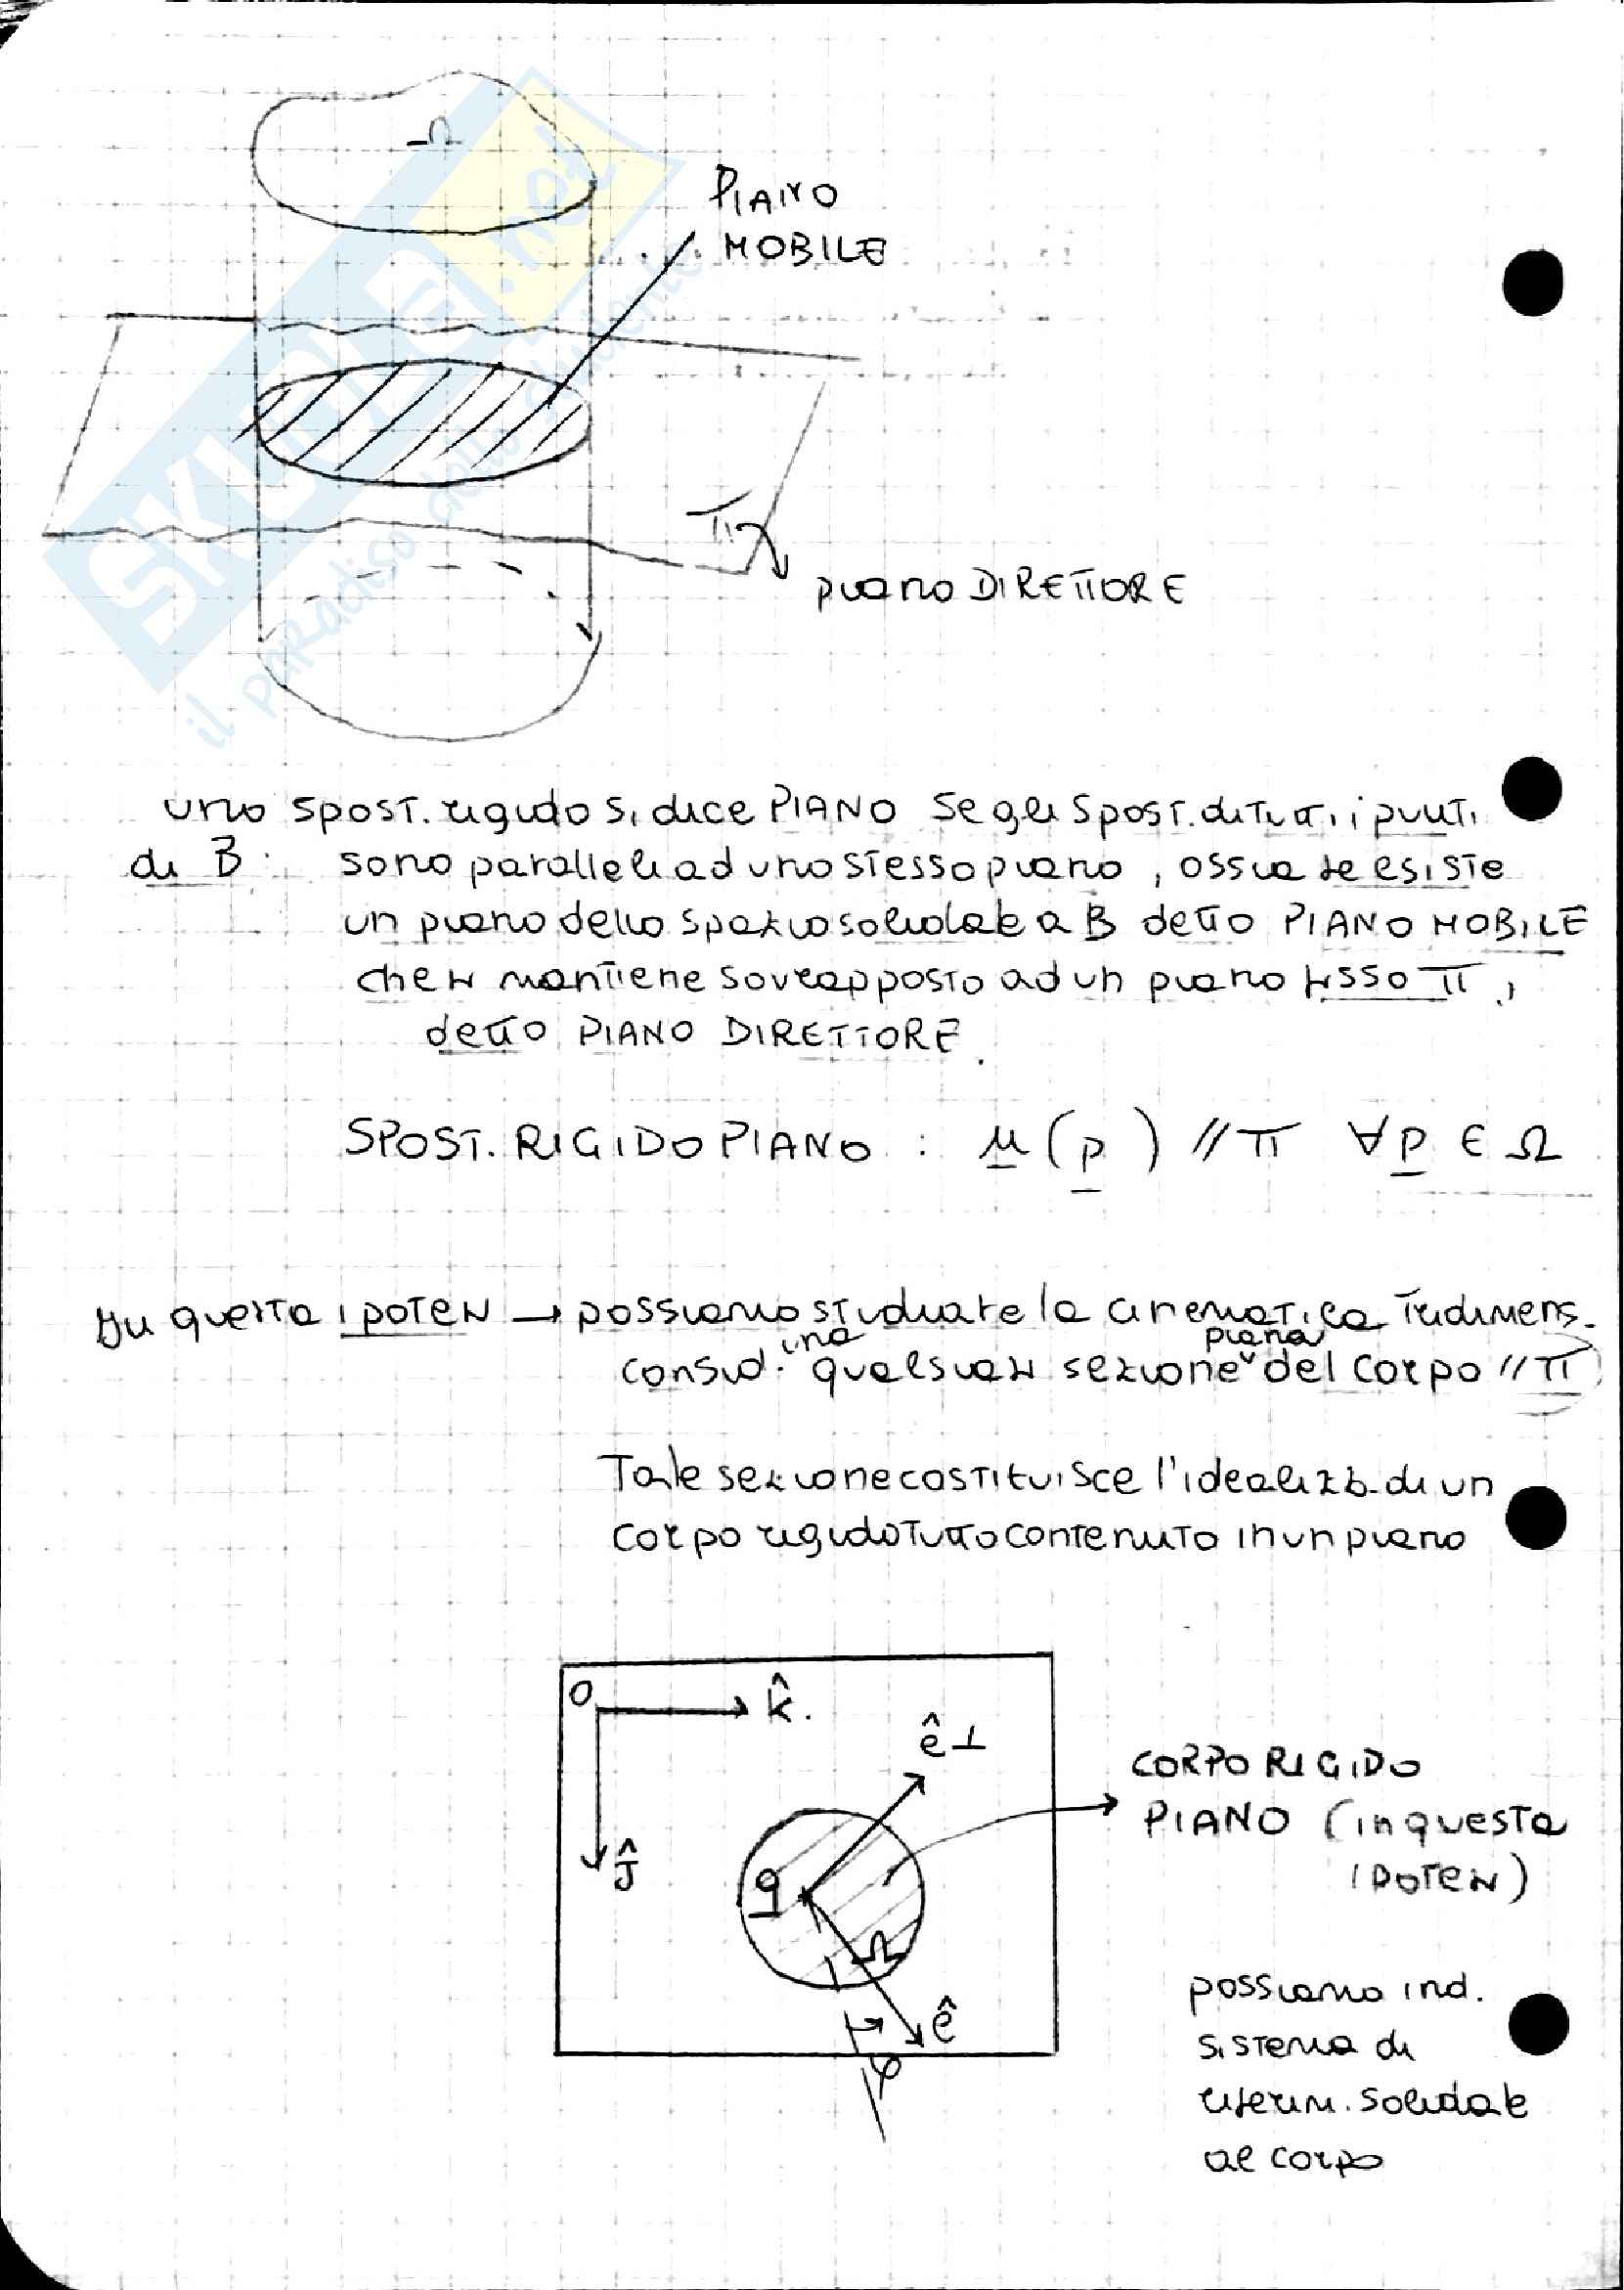 Ω
PIANO
MOBILE
SKUOLA.net
il paradiso dello studente
π
piano DIRETTORE
uno spost. rigido si dice PIANO se gli spost. di tutti i punti
di B : sono paralleli ad uno stesso piano, ossia se esiste
un piano dello spazio solidale a B detto PIANO MOBILE
che si mantiene sovrapposto ad un piano fisso π,
detto PIANO DIRETTORE.
SPOST. RIGIDO PIANO : u(p) // π ∀p ∈ Ω
In questa ipotesi → possiamo studiare la cinematica tridimens.
consid. una qualsiasi sezione piana del corpo // π
Tale sezione costituisce l'idealizz. di un
corpo rigido tutto contenuto in un piano
O
k̂.
ê⊥
ĵ
q
Ω
ê
φ
CORPO RIGIDO
PIANO (in questa
ipotesi)
possiamo ind.
sistema di
riferim. solidale
al corpo